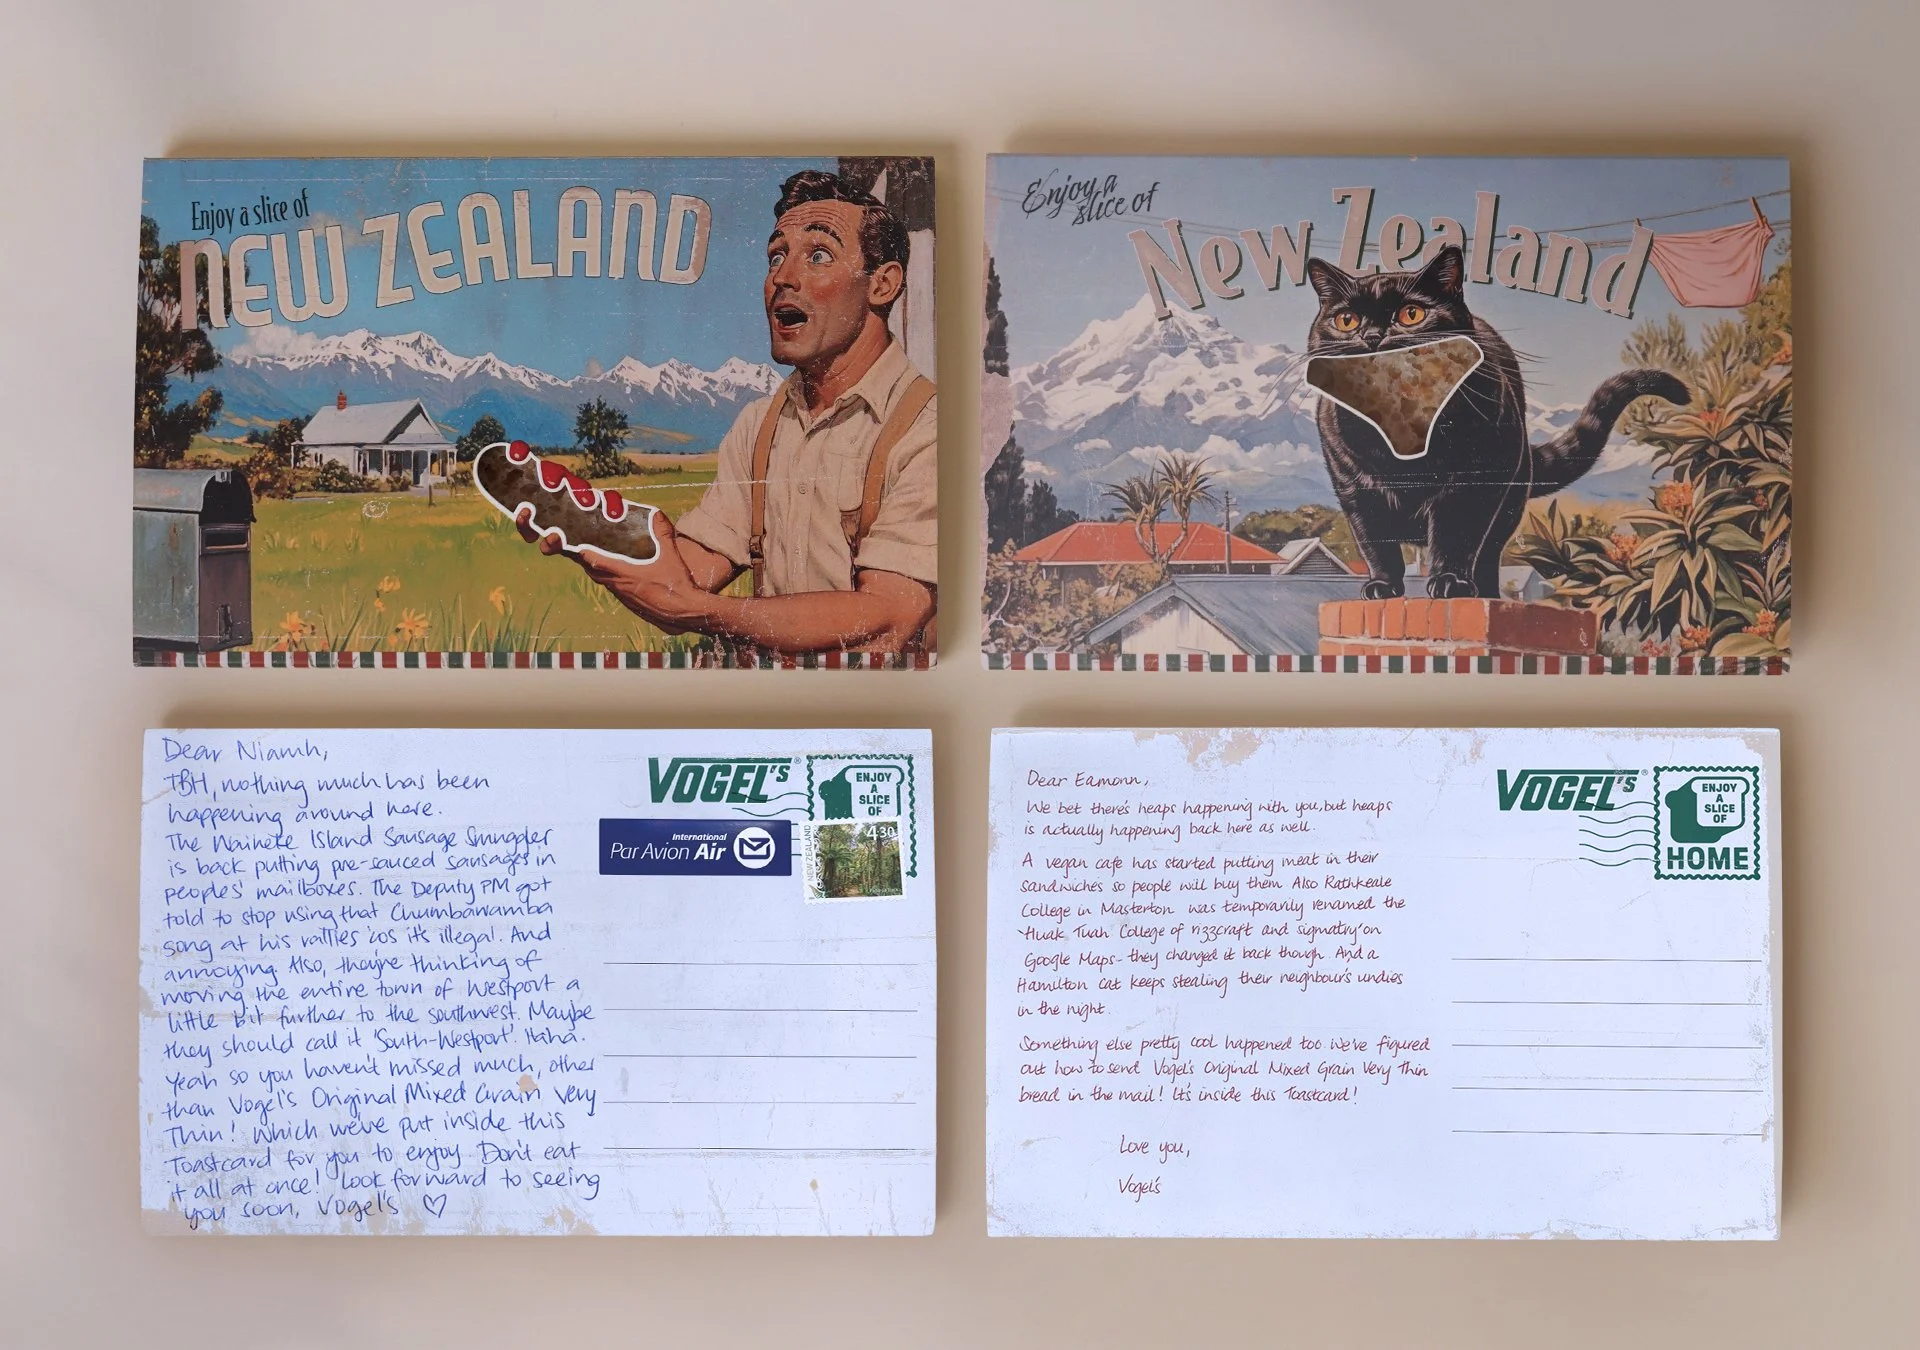 Enjoy a slice of
NEW ZEALAND
Enjoy a
slice of
New Zealand
Dear Niamh,
TBH, nothing much has been
happening around here.
The Waiheke Island Sausage Smuggler
is back putting pre-sauced sausages in
peoples' mailboxes. The Deputy PM got
told to stop using that Chumbawamba
song at his rallies 'cos it's illegal. And
annoying. Also, they're thinking of
moving the entire town of Westport a
little bit further to the southwest. Maybe
they should call it 'South-Westport'. Haha.
Yeah so you haven't missed much, other
than Vogel's Original Mixed Grain Very
Thin! Which we've put inside this
Toastcard for you to enjoy. Don't eat
it all at once! Look forward to seeing
you soon, Vogel's ♡
VOGEL'S®
ENJOY
A
SLICE
OF
International
Par Avion Air
NEW ZEALAND
4.30
Dear Eamonn,
We bet there's heaps happening with you, but heaps
is actually happening back here as well.
A vegan cafe has started putting meat in their
sandwiches so people will buy them. Also Rathkeale
College in Masterton was temporarily renamed the
'Huak Tuah College of rizzcraft and sigmatry' on
Google Maps - they changed it back though. And a
Hamilton cat keeps stealing their neighbour's undies
in the night.
Something else pretty cool happened too. We've figured
out how to send Vogel's Original Mixed Grain Very Thin
bread in the mail! It's inside this Toastcard!
Love you,
Vogel's
VOGEL'S®
ENJOY
A
SLICE
OF
HOME